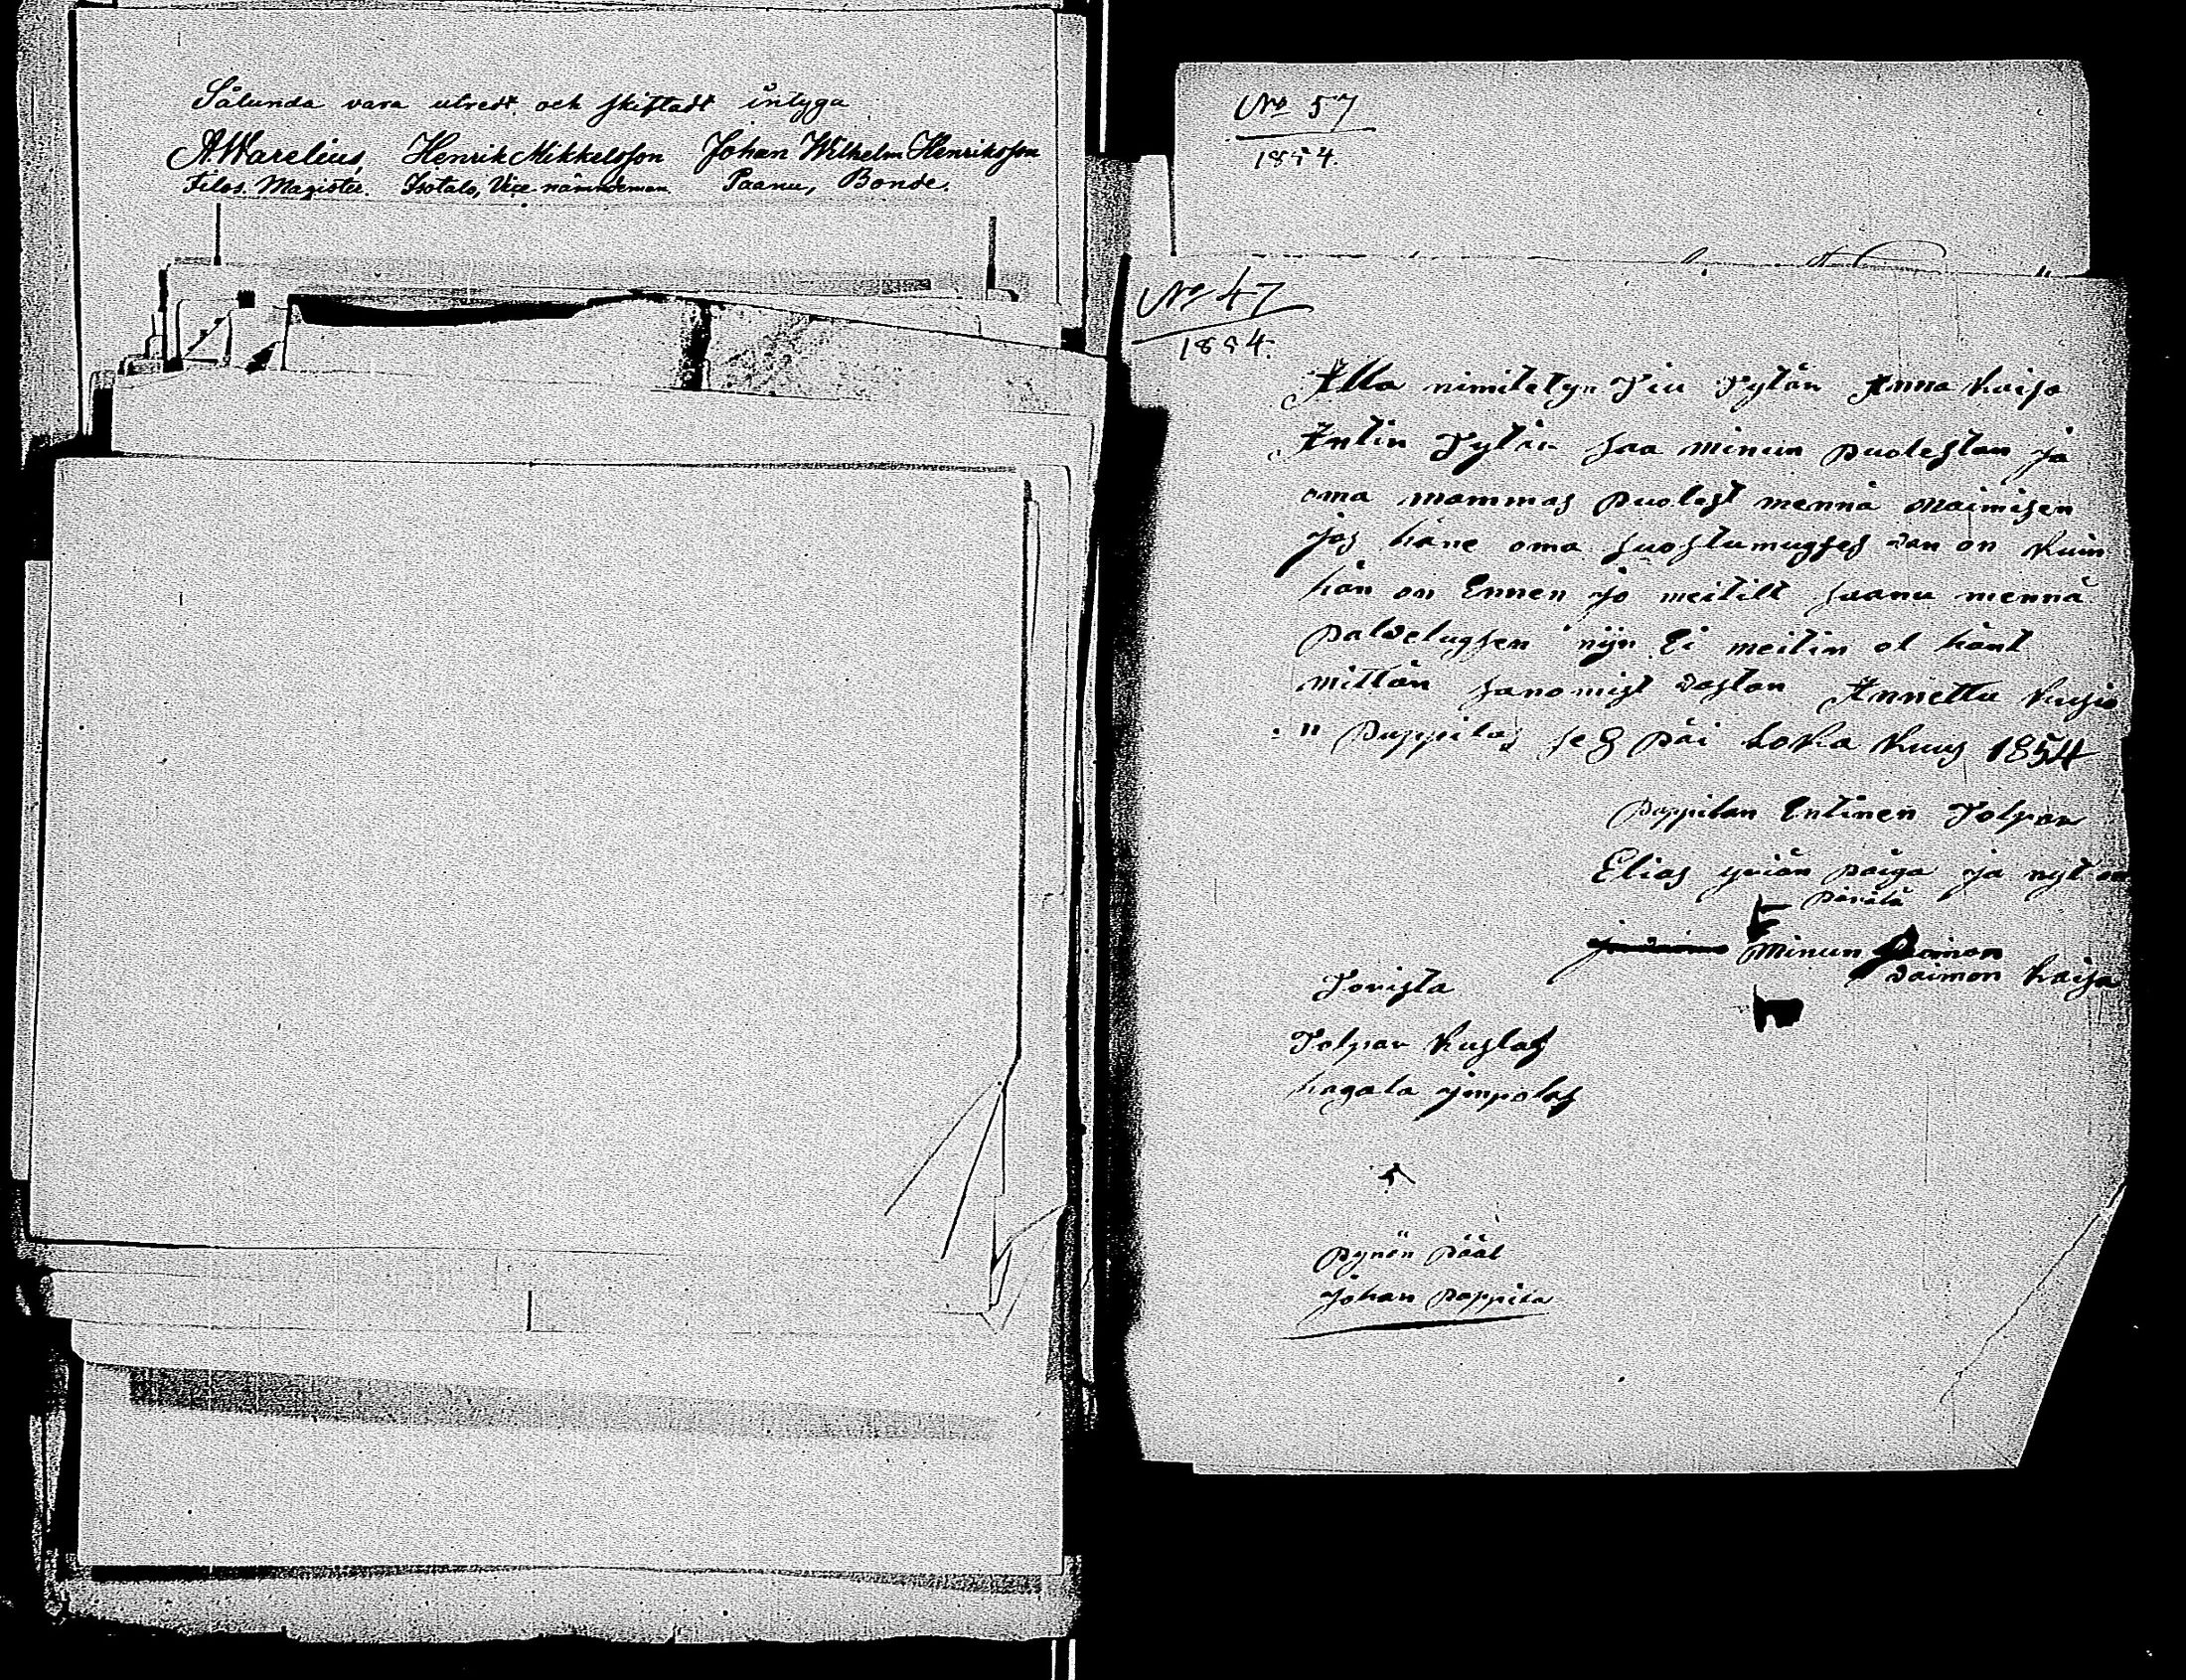 Sålunda vara utredt och skiftadt intyga
A. Warelius, Henrik Mikkelsson Johan Wilhelm Henriksson
Filos. Magister. Isotalo, Vice nämndeman. Paanu, Bonde.
No 57
1854.
No 47
1854.
Alla nimitetyn Piu Tytän Anna Kaisa
Antin Tytän saa minun puolestan ja
oma mammas puolest mennä naimisen
jos häne oma suostumugses van on kuin
hän on Ennen jo meitilt saanu mennä
palvelugsen niin Ei meitin ol händ
mittän sanomist vastan Annettu
Pappilas se 8 päi loka kuus 1854
pappilan Entinen Tolpar
Elias yrjän poiga ja nyt on
Minun
vaimon Kaisa
Tovista
Tolpar Kustas
hagala impolas
pynön pääl
Johan Pappila